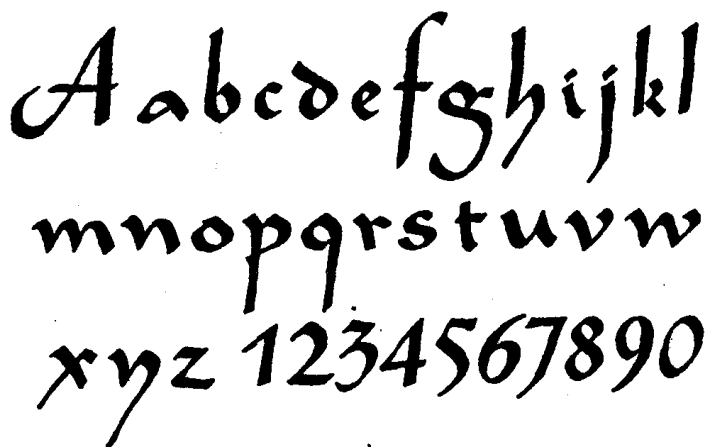 Aabcdefghijkl
mnopqrstuvw
xyz 1234567890